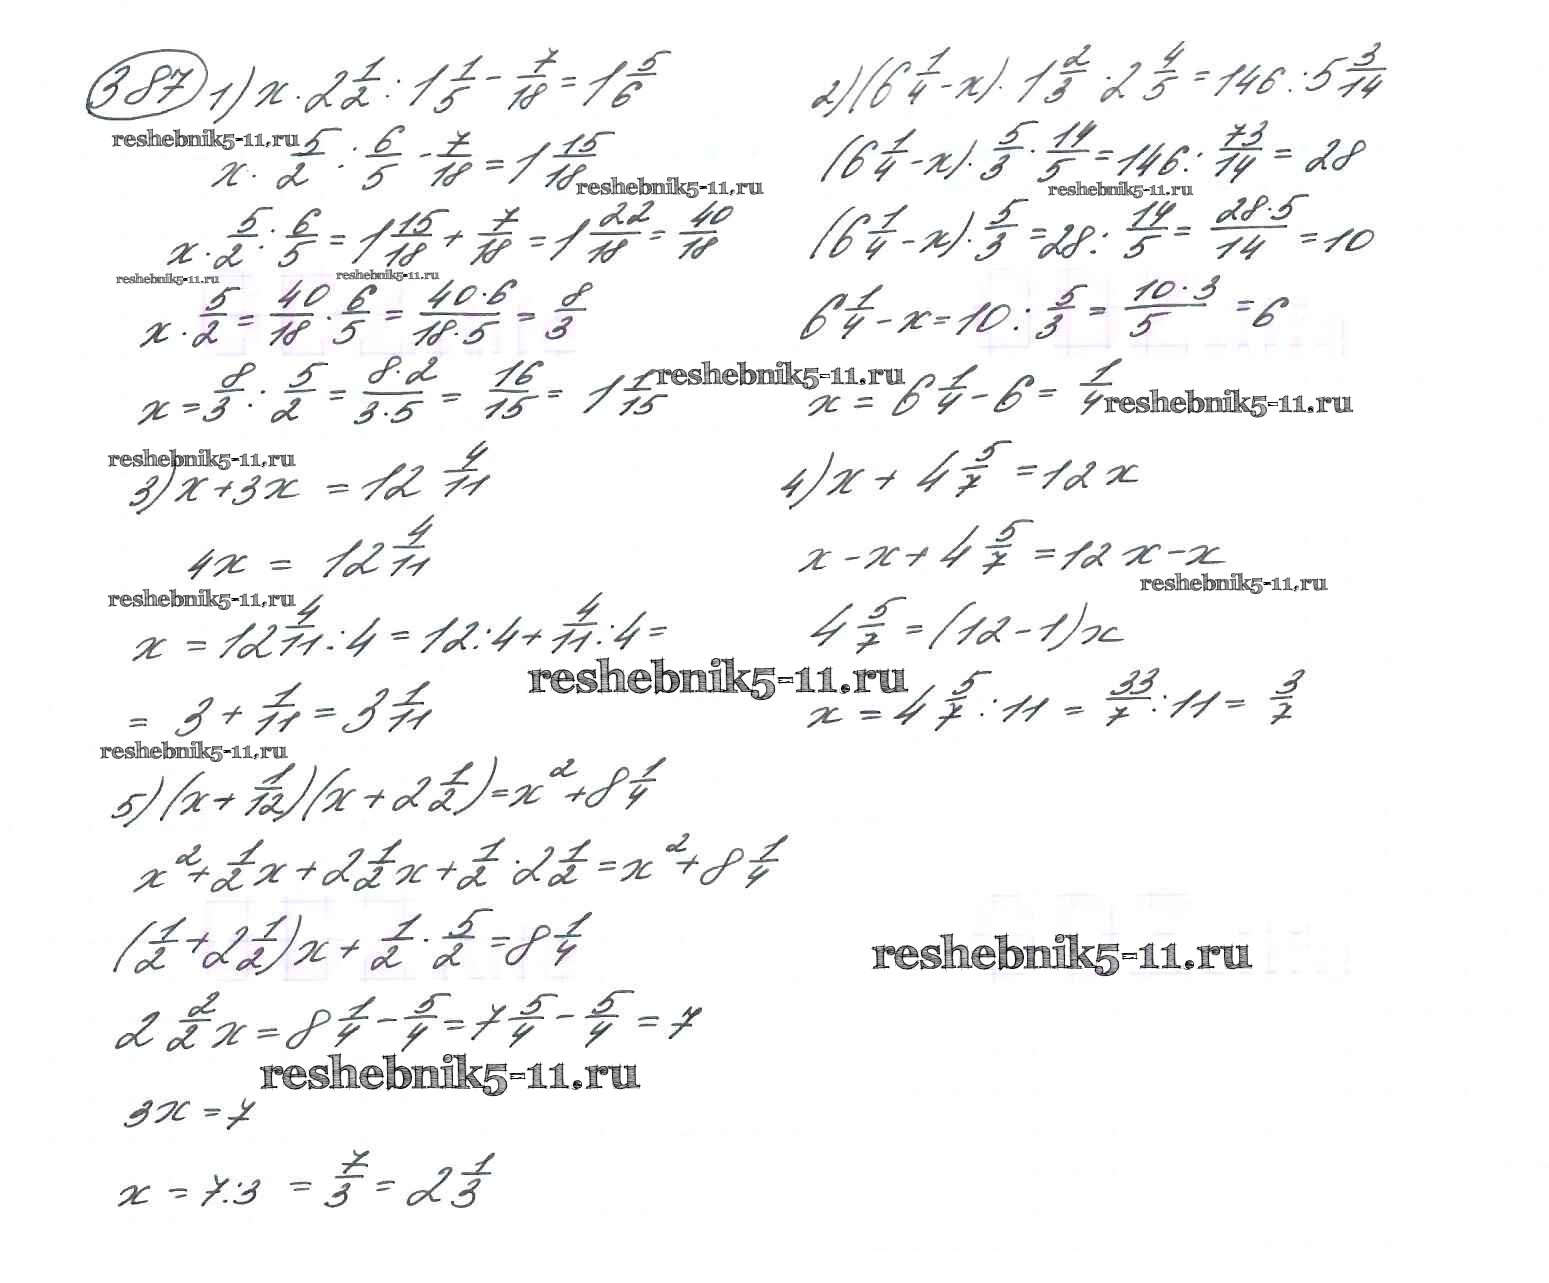 387 1) x · 2 1/2 : 1 1/5 - 7/18 = 1 5/6
reshebnik5-11.ru
x · 5/2 : 6/5 - 7/18 = 1 15/18
reshebnik5-11.ru
x · 5/2 : 6/5 = 1 15/18 + 7/18 = 1 22/18 = 40/18
reshebnik5-11.ru reshebnik5-11.ru
x · 5/2 = 40/18 · 6/5 = 40·6/18·5 = 8/3
x = 8/3 : 5/2 = 8·2/3·5 = 16/15 = 1 1/15
reshebnik5-11.ru
2) (6 1/4 - x) · 1 2/3 · 2 4/5 = 146 : 5 3/14
(6 1/4 - x) · 5/3 · 14/5 = 146 : 73/14 = 28
reshebnik5-11.ru
(6 1/4 - x) · 5/3 = 28 : 14/5 = 28·5/14 = 10
6 1/4 - x = 10 : 5/3 = 10·3/5 = 6
x = 6 1/4 - 6 = 1/4
reshebnik5-11.ru
reshebnik5-11.ru
3) x + 3x = 12 4/11
4x = 12 4/11
reshebnik5-11.ru
x = 12 4/11 : 4 = 12 : 4 + 4/11 : 4 =
= 3 + 1/11 = 3 1/11
reshebnik5-11.ru
4) x + 4 5/7 = 12x
x - x + 4 5/7 = 12x - x
reshebnik5-11.ru
4 5/7 = (12 - 1)x
x = 4 5/7 : 11 = 33/7 : 11 = 3/7
reshebnik5-11.ru
5) (x + 1/12)(x + 2 1/2) = x² + 8 1/4
x² + 1/2 x + 2 1/2 x + 1/2 · 2 1/2 = x² + 8 1/4
(1/2 + 2 1/2) x + 1/2 · 5/2 = 8 1/4
reshebnik5-11.ru
2 2/2 x = 8 1/4 - 5/4 = 7 5/4 - 5/4 = 7
reshebnik5-11.ru
3x = 7
x = 7 : 3 = 7/3 = 2 1/3